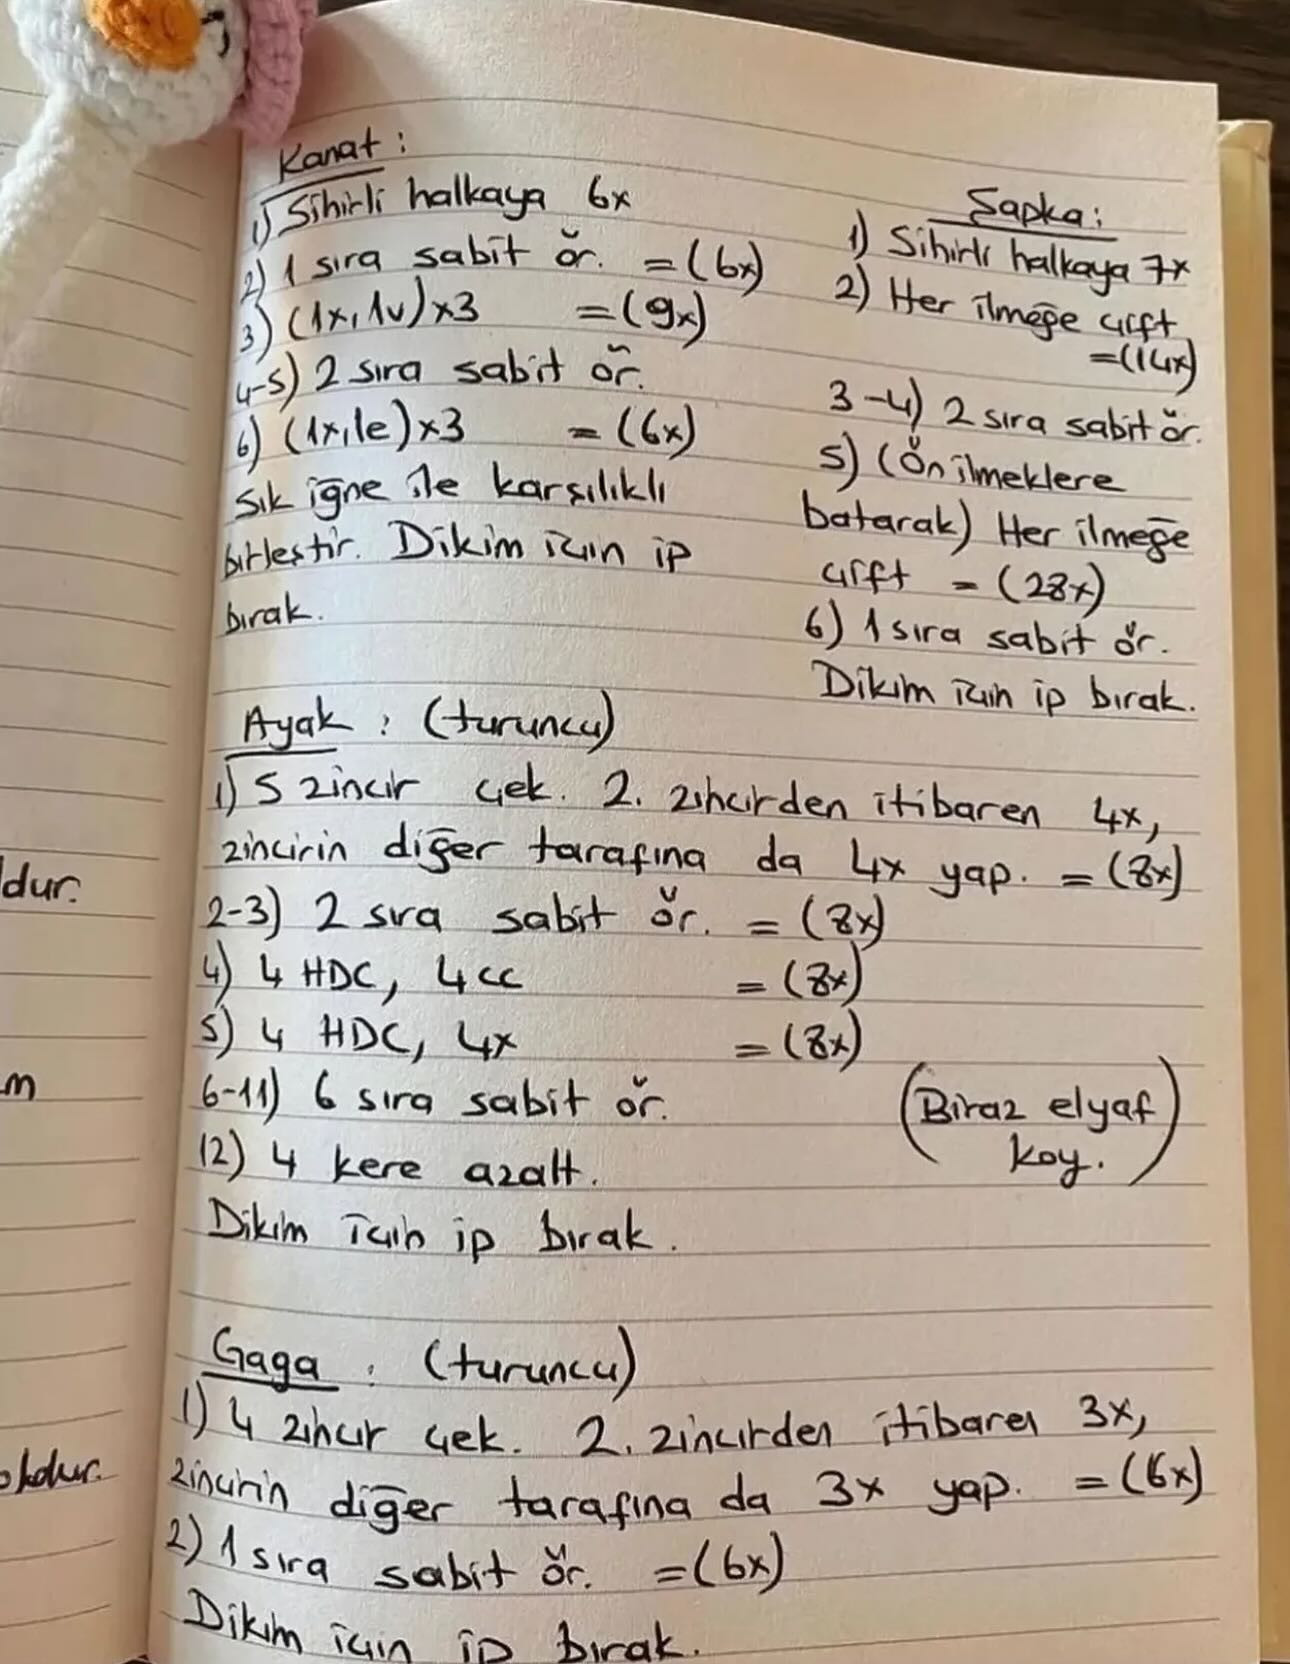 Kanat:
1) Sihirli halkaya 6x
2) 1 sıra sabit ör. = (6x)
3) (1x,1v)x3 = (9x)
4-5) 2 sıra sabit ör.
6) (1x,1e)x3 = (6x)
Sık iğne ile karşılıklı
birleştir. Dikim için ip
bırak.
Şapka:
1) Sihirli halkaya 7x
2) Her ilmeğe çift
=(14x)
3-4) 2 sıra sabit ör.
5) (Ön ilmeklere
batarak) Her ilmeğe
çift = (28x)
6) 1 sıra sabit ör.
Dikim için ip bırak.
Ayak : (turuncu)
1) 5 zincir çek. 2. zincirden itibaren 4x,
zincirin diğer tarafına da 4x yap. = (8x)
2-3) 2 sıra sabit ör. = (8x)
4) 4 HDC, 4cc = (8x)
5) 4 HDC, 4x = (8x)
6-11) 6 sıra sabit ör. (Biraz elyaf
koy.)
12) 4 kere azalt.
Dikim için ip bırak.
Gaga : (turuncu)
1) 4 zincir çek. 2. zincirden itibaren 3x,
zincirin diğer tarafına da 3x yap. = (6x)
2) 1 sıra sabit ör. =(6x)
Dikim için ip bırak.